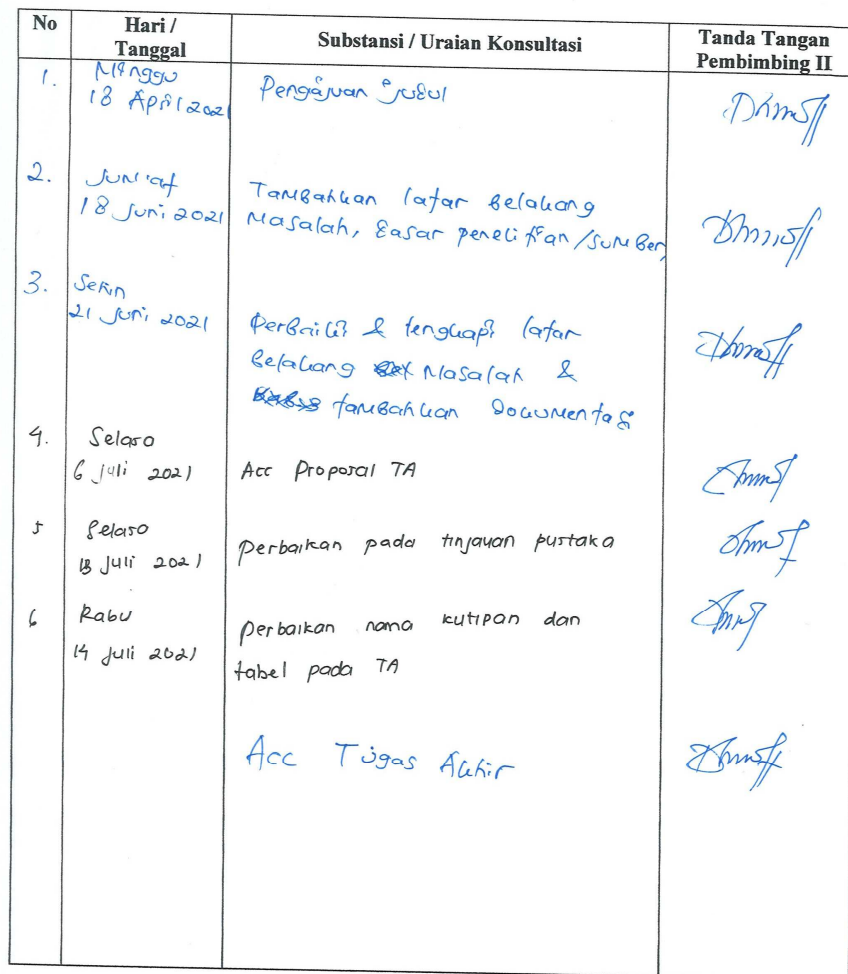 No Hari / Tanggal Substansi / Uraian Konsultasi Tanda Tangan Pembimbing II
1. Minggu
18 April 2021 Pengajuan judul
2. Jum'at
18 Juni 2021 Tambahkan latar belakang
Masalah, Dasar penelitian/sumber,
3. Senin
21 Juni 2021 Perbaiki & lengkapi latar
belakang Masalah &
tambahkan Dokumentasi
4. Selasa
6 Juli 2021 Acc Proposal TA
5 Selasa
13 Juli 2021 Perbaikan pada tinjauan pustaka
6 Rabu
14 Juli 2021 Perbaikan nama kutipan dan
tabel pada TA
Acc Tugas Akhir